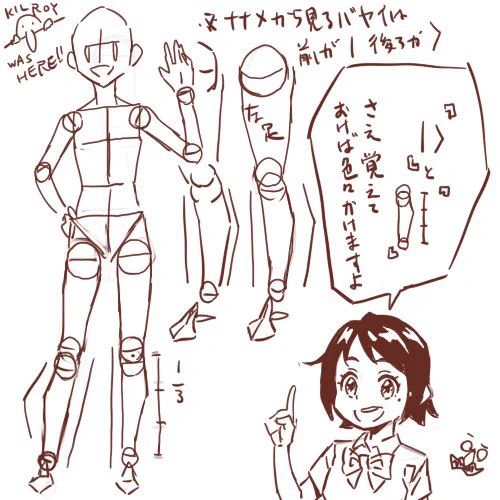 KILROY
WAS
HERE!!
※ナナメから見るバヤイは
前が | 後ろが 〉
左足
「| 〉」と「」
さえ覚えて
おけば色々かけますよ
1/3